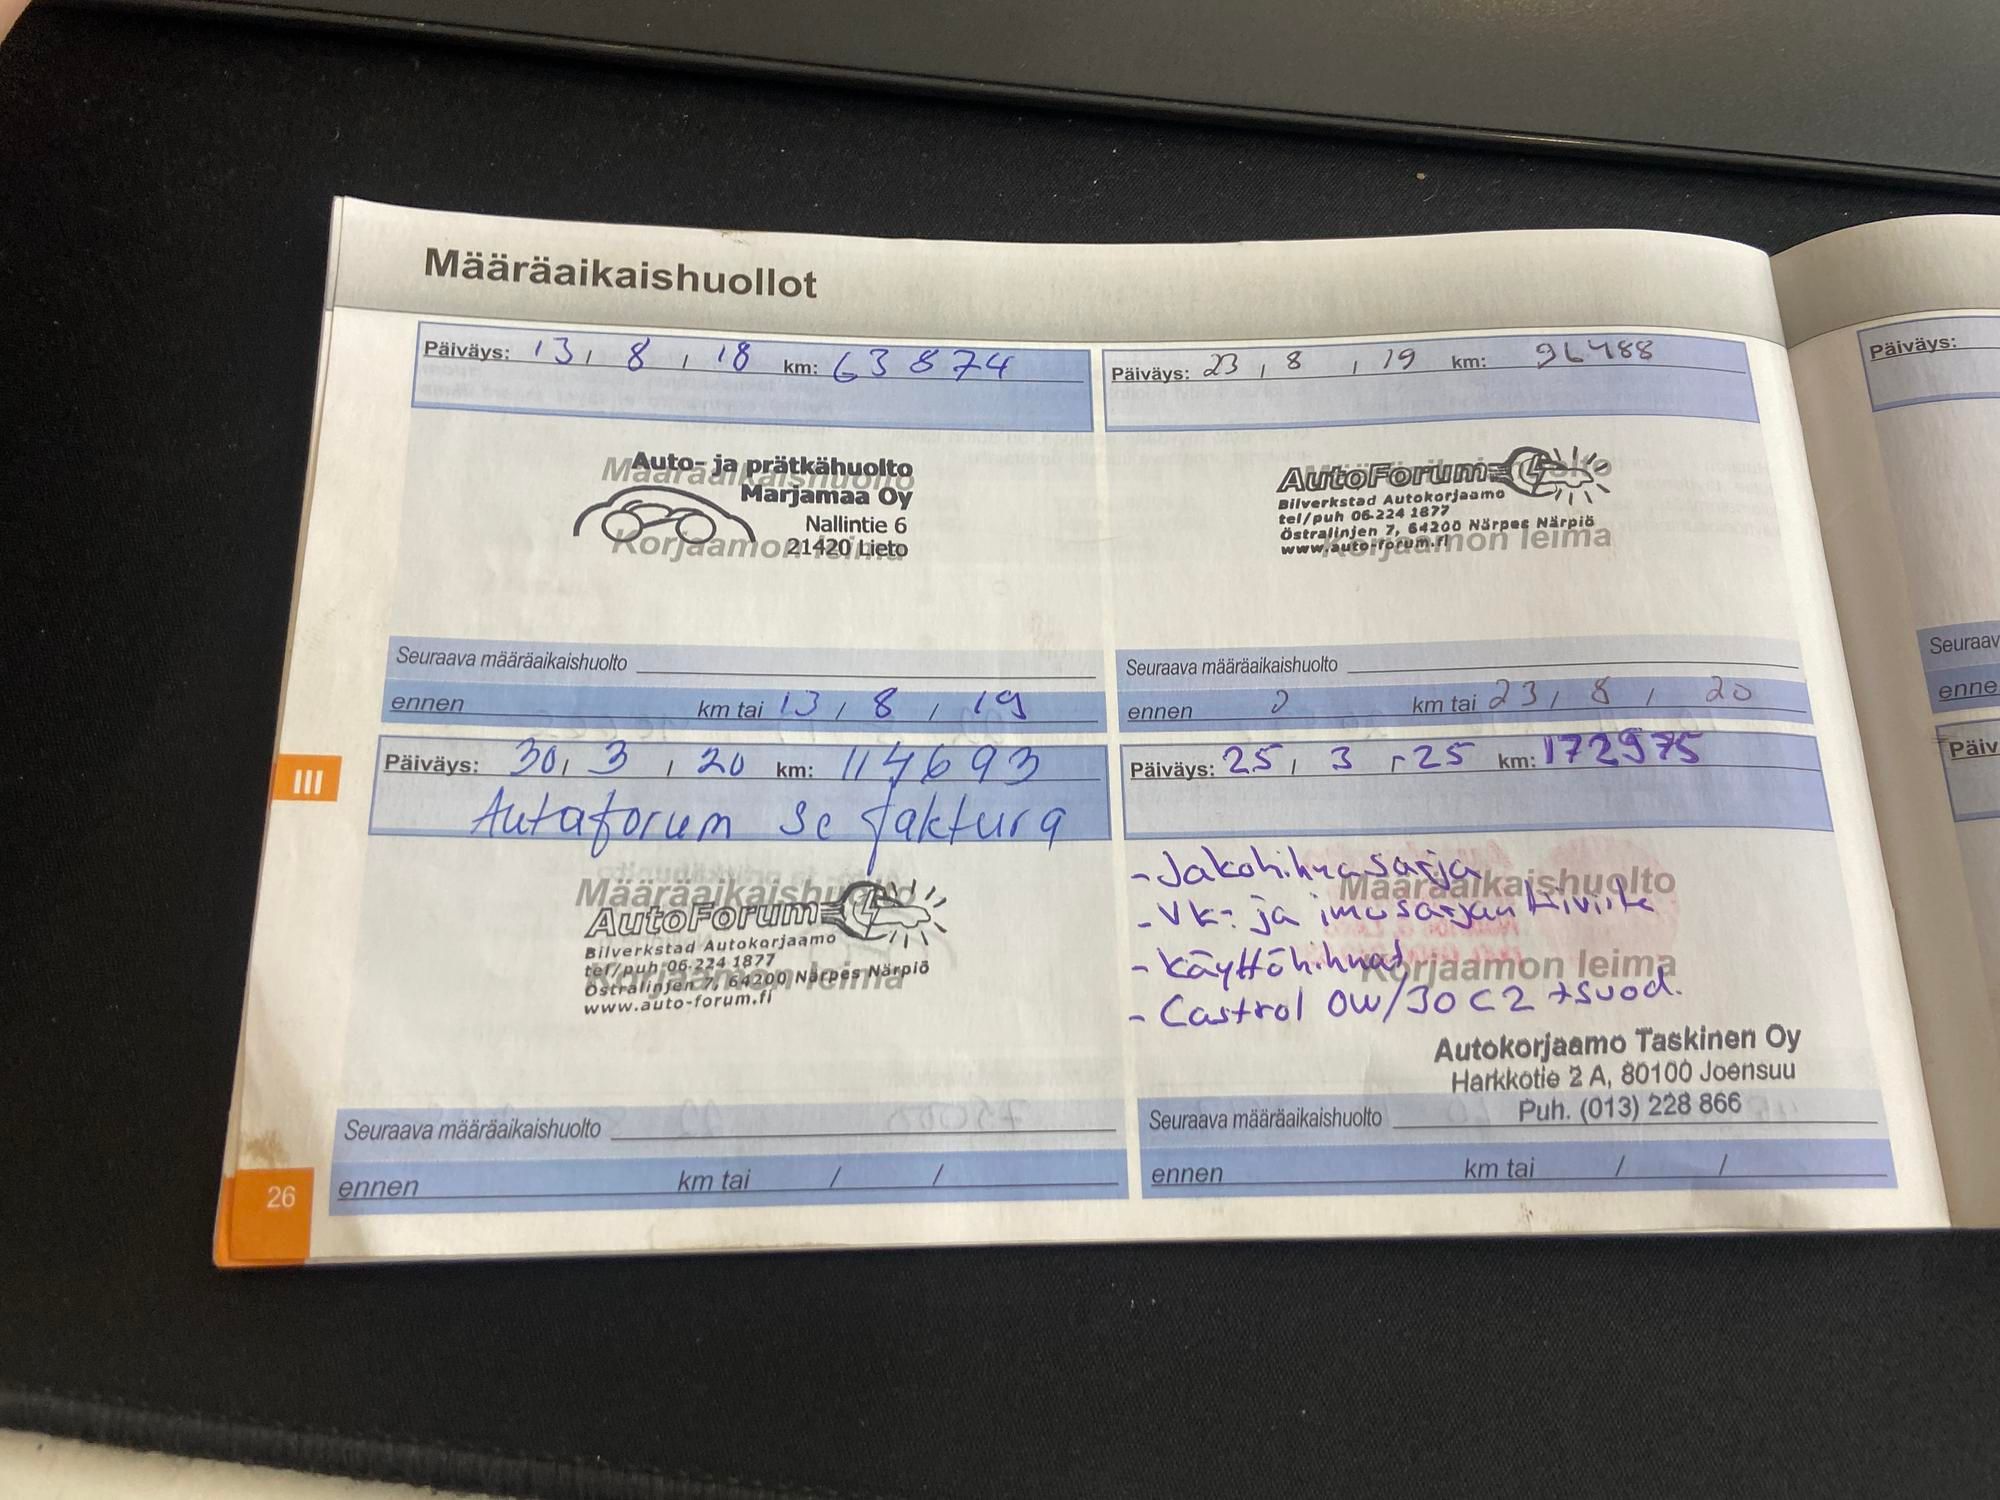 Määräaikaishuollot
Päiväys: 13, 8, 18 km: 63874
Määräaikaishuolto
Korjaamon leima
Auto- ja prätkähuolto
Marjamaa Oy
Nallintie 6
21420 Lieto
Seuraava määräaikaishuolto
ennen km tai 13, 8, 19
Päiväys: 23, 8, 19 km: 96488
AutoForum
Bilverkstad Autokorjaamo
tel/puh 06-224 1877
Östralinjen 7, 64200 Närpes Närpiö
www.auto-forum.fi
Korjaamon leima
Seuraava määräaikaishuolto
ennen km tai 23, 8, 20
Päiväys: 30, 3, 20 km: 114693
Autaforum se faktura
Määräaikaishuolto
AutoForum
Bilverkstad Autokorjaamo
tel/puh 06-224 1877
Östralinjen 7, 64200 Närpes Närpiö
www.auto-forum.fi
Korjaamon leima
Seuraava määräaikaishuolto
ennen km tai / /
Päiväys: 25, 3, 25 km: 172975
- Jakohihnasarja
Määräaikaishuolto
- Vk- ja imusarjan tiiviste
- Käyttöhihnat
Korjaamon leima
- Castrol 0W/30 C2 +suod.
Autokorjaamo Taskinen Oy
Harkkotie 2 A, 80100 Joensuu
Puh. (013) 228 866
Seuraava määräaikaishuolto
ennen km tai / /
III
26
Päiväys:
Seuraav
enne
Päiv